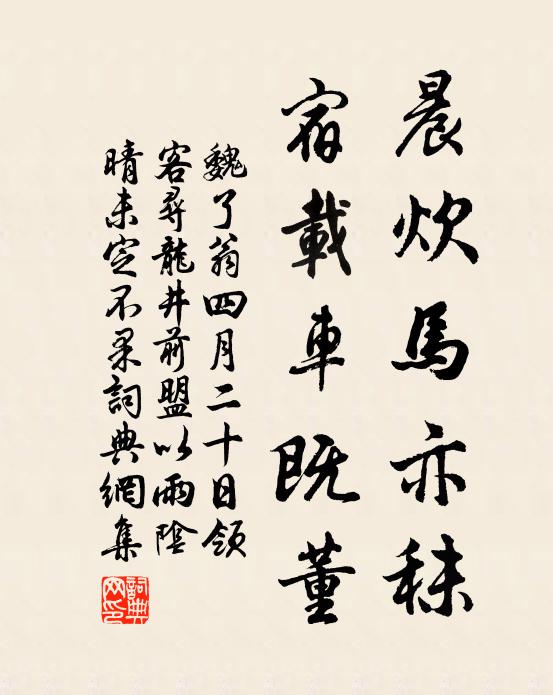 晨炊馬亦秣
宿載車既董
魏了翁四月二十日領
客尋龍井前盟以雨陰
晴未定不果詞典網集
詞典網印